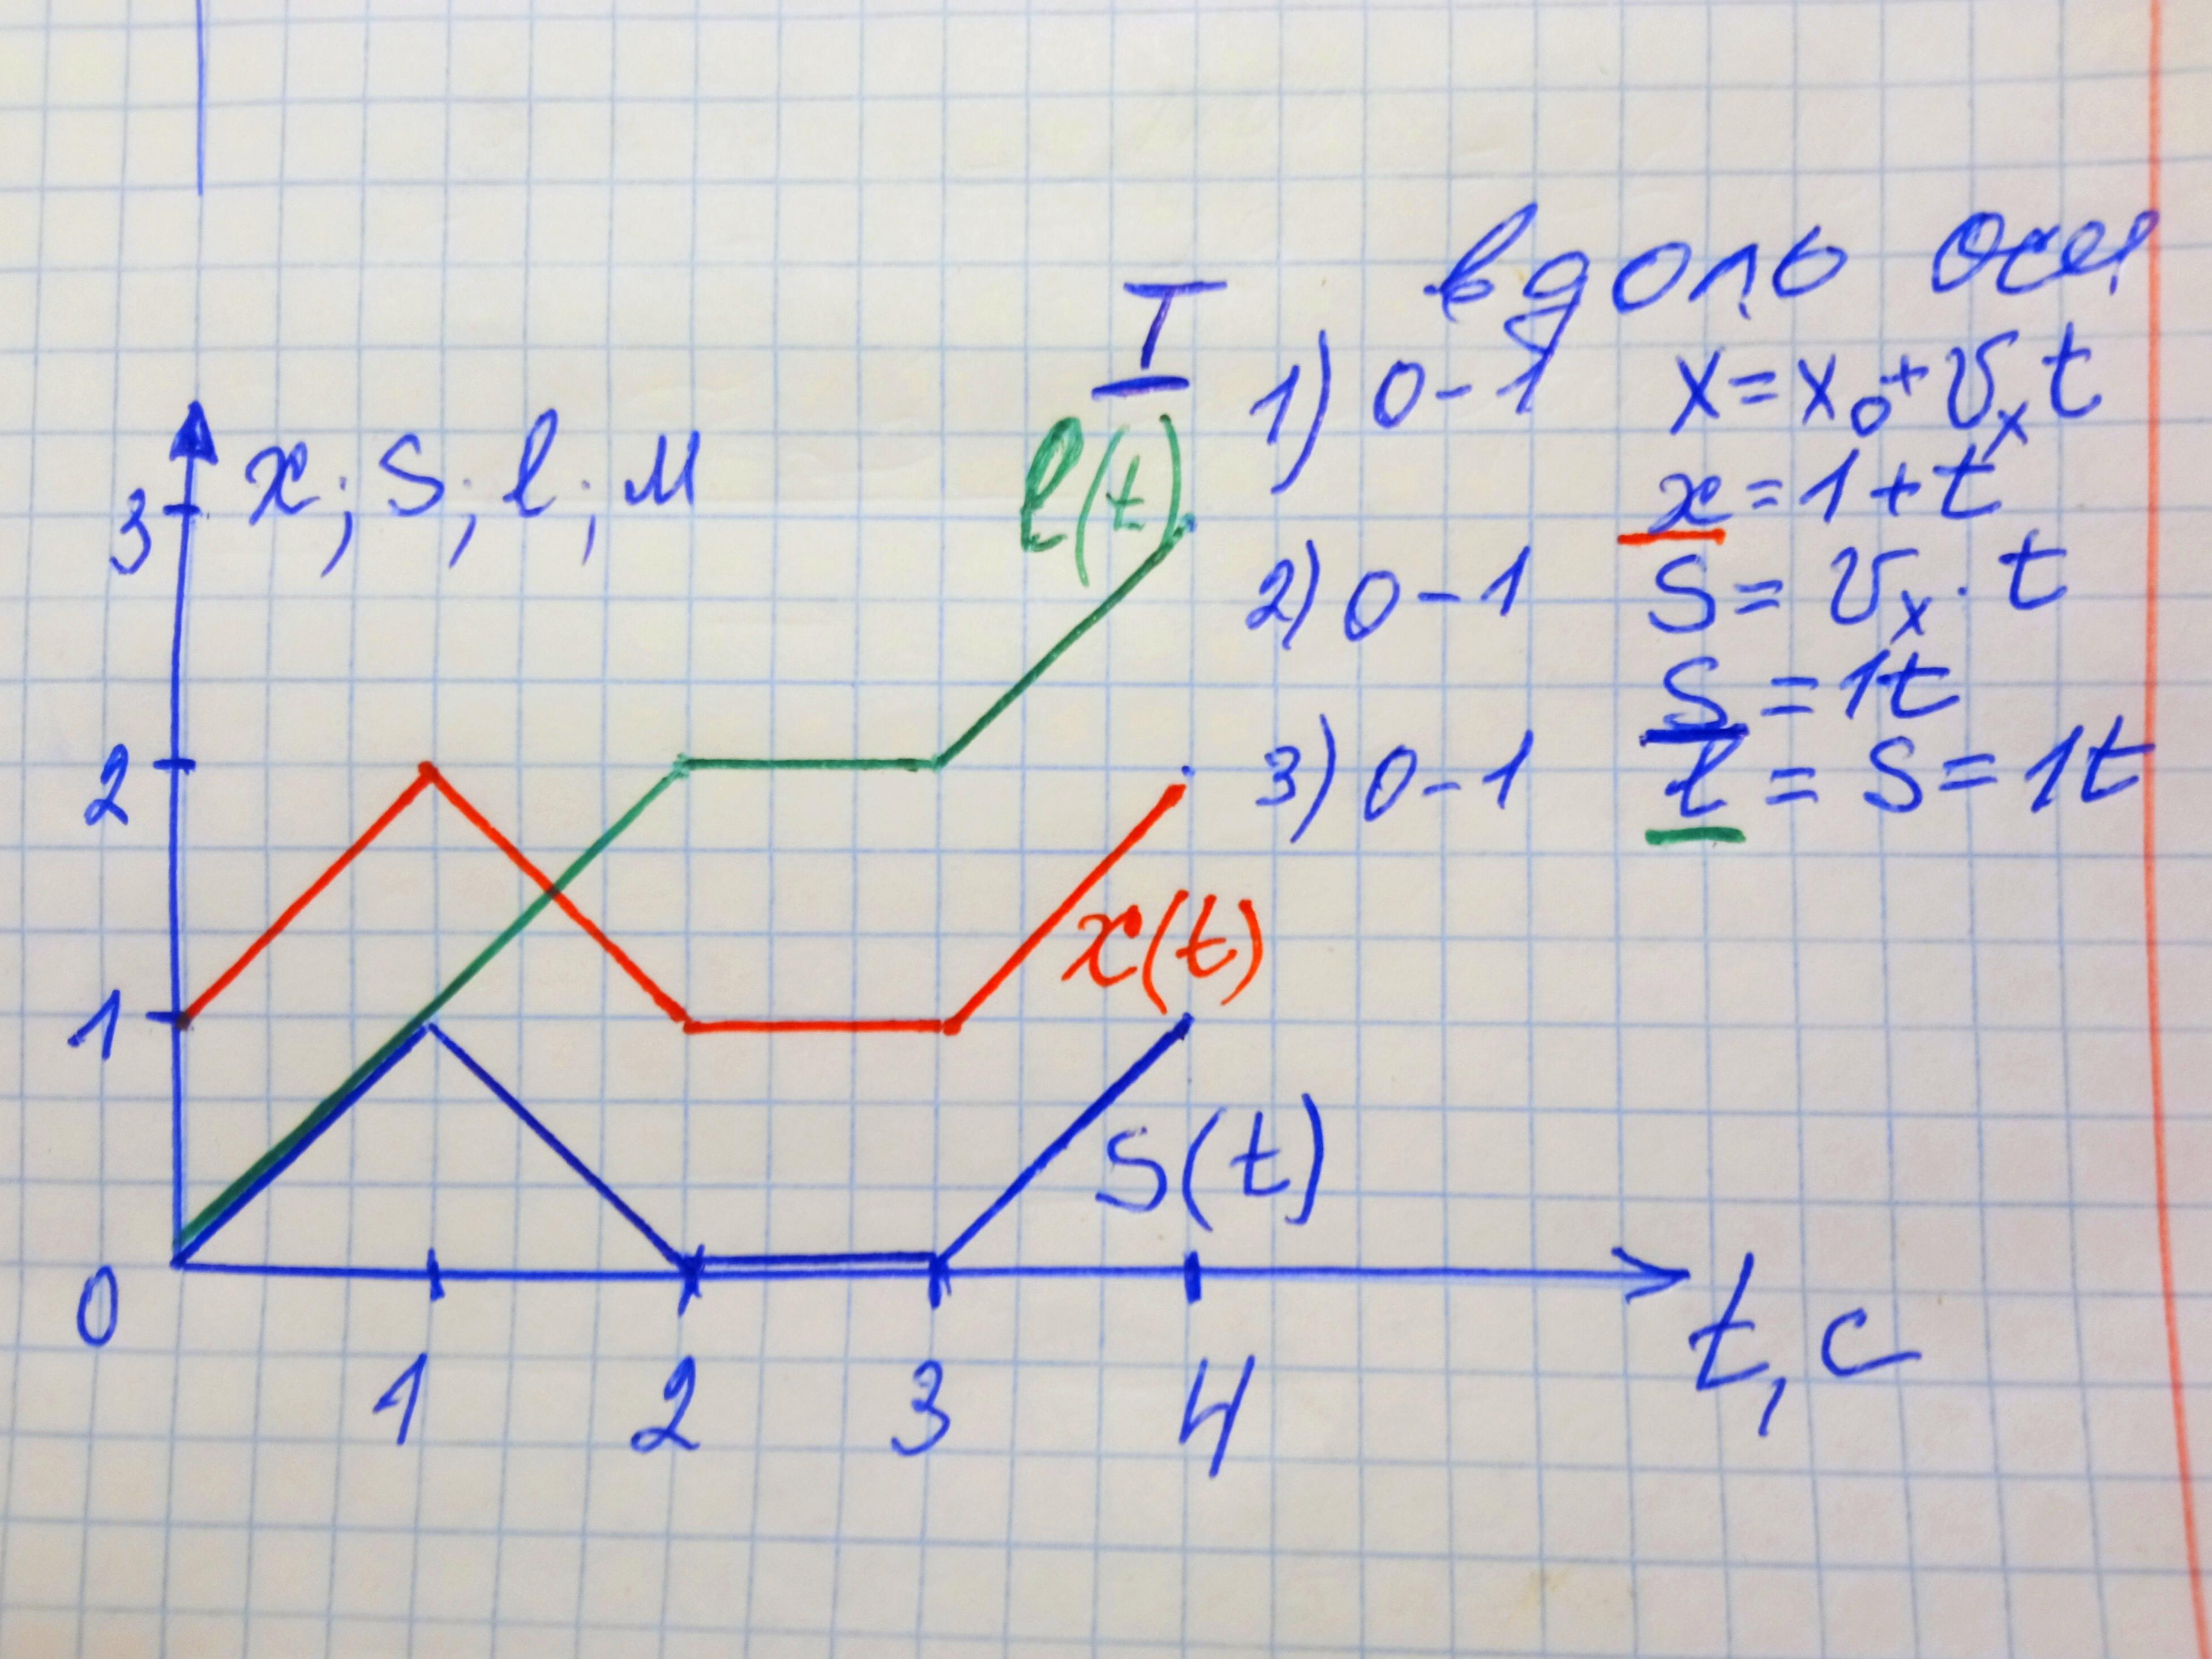 вдоль оси
I
1) 0-1 x=x₀+υₓt
x; S; l; м
l(t)
x=1+t
3
2) 0-1 S=υₓ·t
S=1t
2
3) 0-1 l=S=1t
x(t)
1
S(t)
0
1 2 3 4
t, c